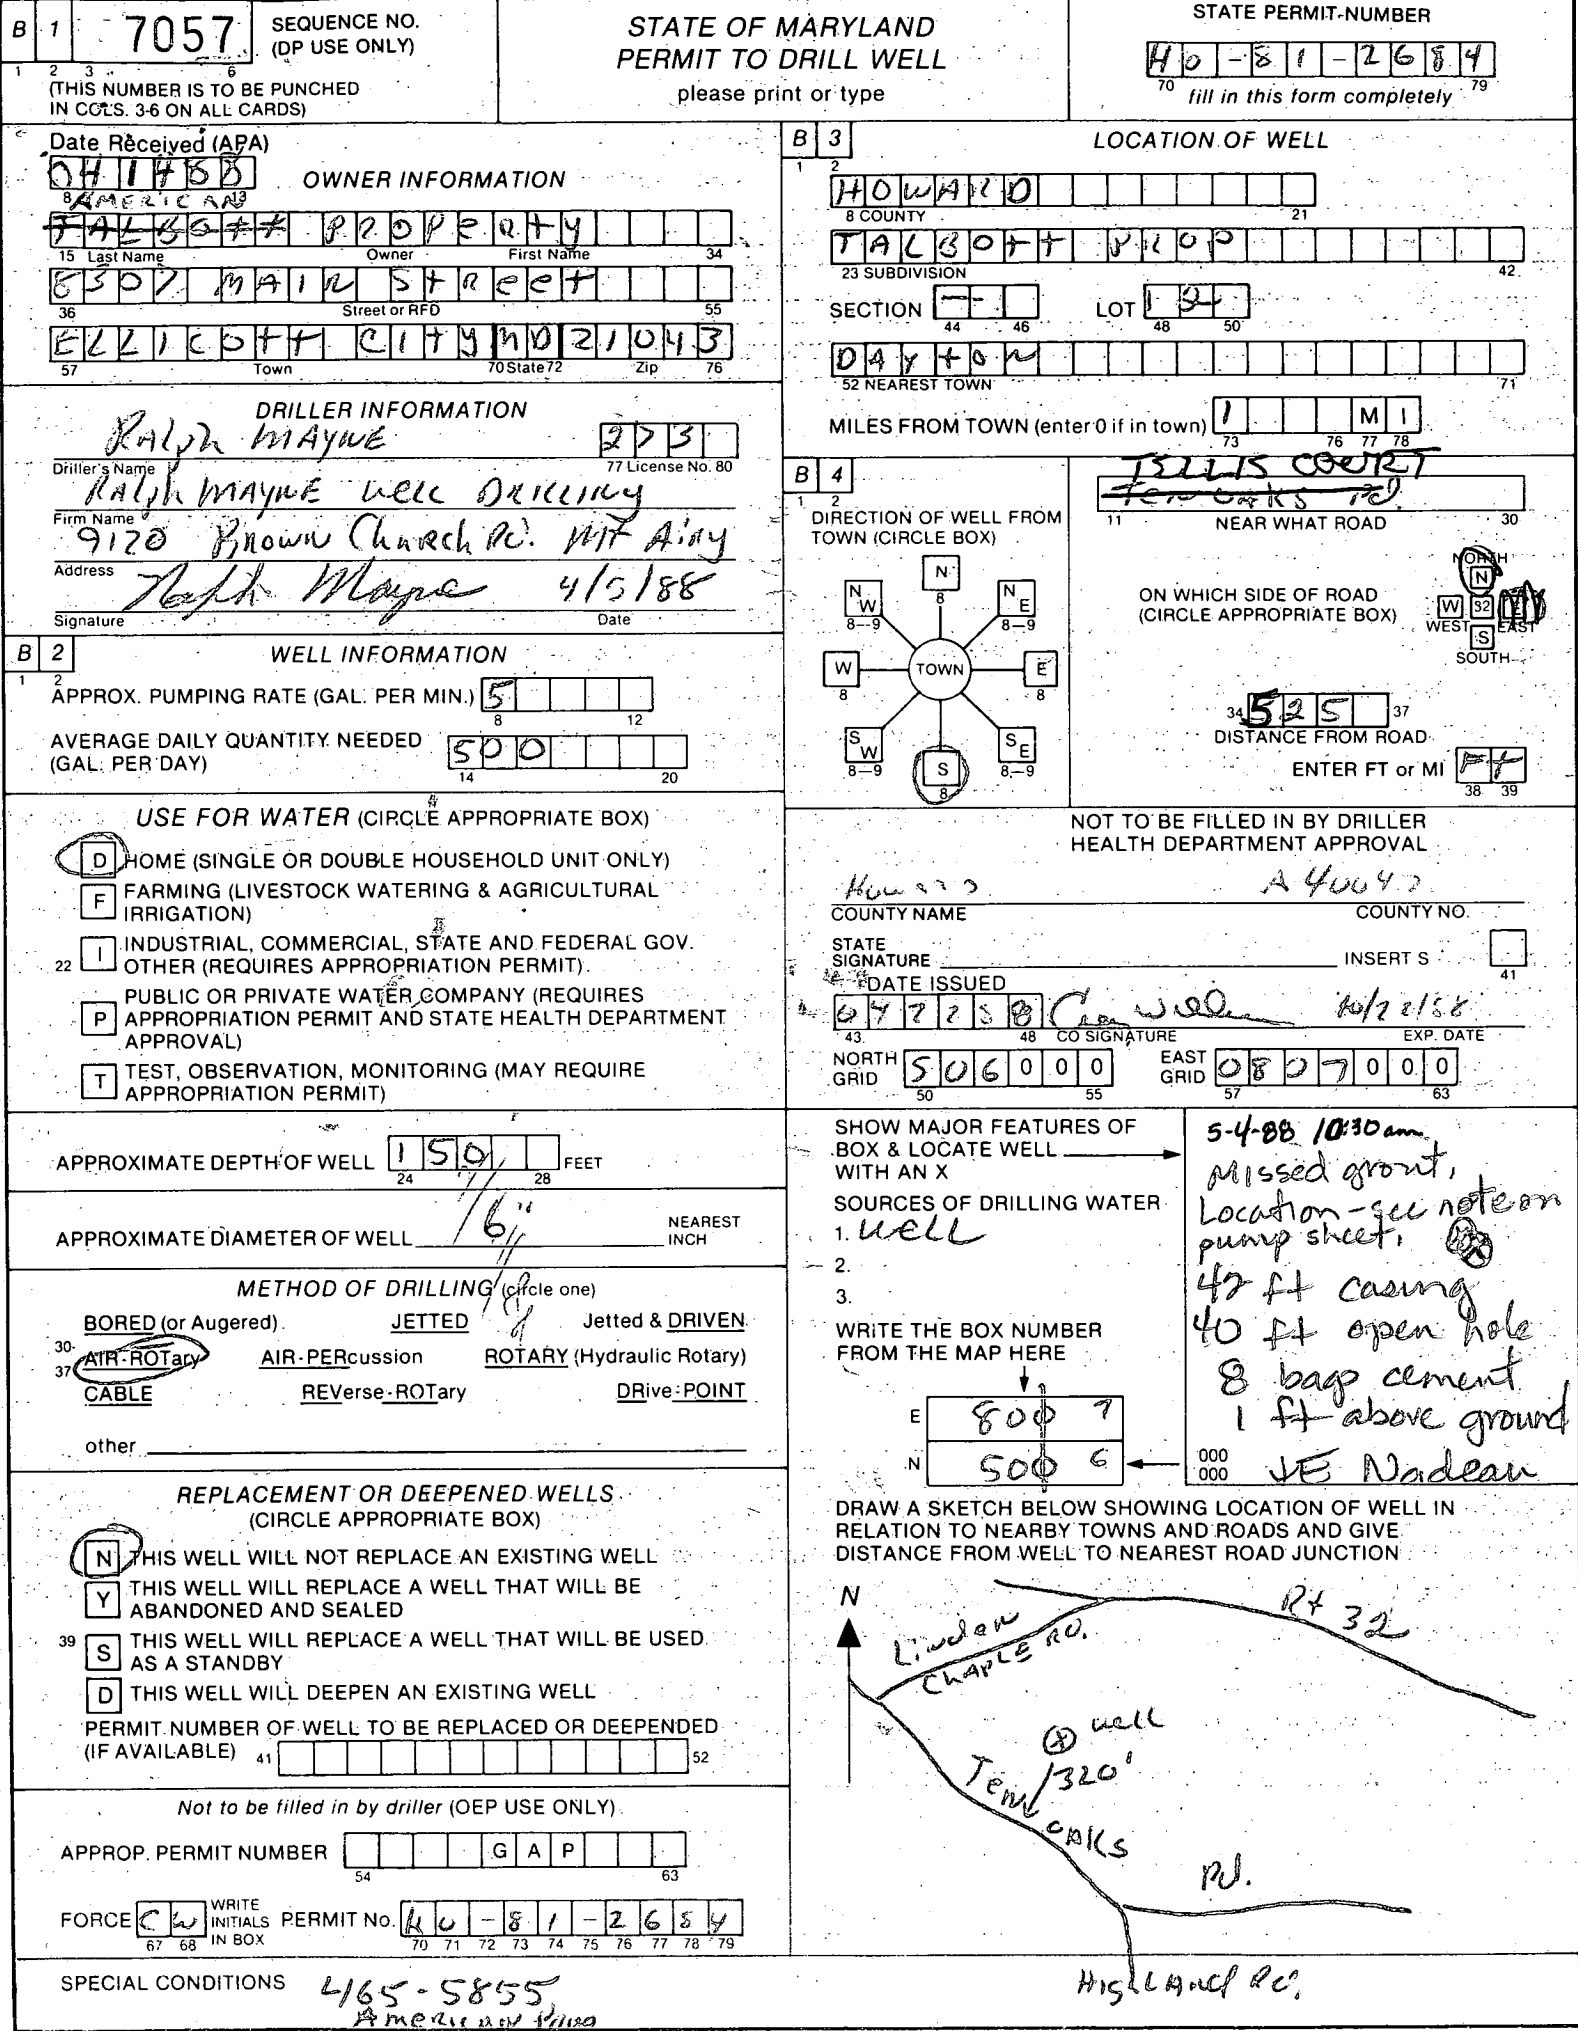 B 1 7057 SEQUENCE NO.
(DP USE ONLY)
1 2 3 6
(THIS NUMBER IS TO BE PUNCHED
IN COLS. 3-6 ON ALL CARDS)
STATE OF MARYLAND
PERMIT TO DRILL WELL
please print or type
STATE PERMIT-NUMBER
HO-81-2684
70 79
fill in this form completely
Date Received (APA)
041488
8 13
OWNER INFORMATION
AMERICAN
TALBOTT PROPERTY
15 Last Name Owner First Name 34
8307 MAIN StReet
36 Street or RFD 55
ELLICOTT CITY MD 21043
57 Town 70 State 72 Zip 76
DRILLER INFORMATION
RALPh MAYNE 273
Driller's Name 77 License No. 80
RALPh MAYNE well DRILLING
Firm Name
9120 Brown Church Rd. Mt Airy
Address
Ralph Mayne 4/5/88
Signature Date
B 2 WELL INFORMATION
1 2
APPROX. PUMPING RATE (GAL. PER MIN.) 5
8 12
AVERAGE DAILY QUANTITY NEEDED
(GAL. PER DAY) 500
14 20
USE FOR WATER (CIRCLE APPROPRIATE BOX)
D HOME (SINGLE OR DOUBLE HOUSEHOLD UNIT ONLY)
F FARMING (LIVESTOCK WATERING & AGRICULTURAL
IRRIGATION)
22 I INDUSTRIAL, COMMERCIAL, STATE AND FEDERAL GOV.
OTHER (REQUIRES APPROPRIATION PERMIT)
P PUBLIC OR PRIVATE WATER COMPANY (REQUIRES
APPROPRIATION PERMIT AND STATE HEALTH DEPARTMENT
APPROVAL)
T TEST, OBSERVATION, MONITORING (MAY REQUIRE
APPROPRIATION PERMIT)
APPROXIMATE DEPTH OF WELL 150 FEET
24 28
APPROXIMATE DIAMETER OF WELL 6" NEAREST
INCH
METHOD OF DRILLING (circle one)
BORED (or Augered) JETTED Jetted & DRIVEN
30-
37 AIR-ROTary AIR-PERcussion ROTARY (Hydraulic Rotary)
CABLE REVerse-ROTary DRive-POINT
other
REPLACEMENT OR DEEPENED WELLS
(CIRCLE APPROPRIATE BOX)
N THIS WELL WILL NOT REPLACE AN EXISTING WELL
Y THIS WELL WILL REPLACE A WELL THAT WILL BE
ABANDONED AND SEALED
39 S THIS WELL WILL REPLACE A WELL THAT WILL BE USED
AS A STANDBY
D THIS WELL WILL DEEPEN AN EXISTING WELL
PERMIT NUMBER OF WELL TO BE REPLACED OR DEEPENDED
(IF AVAILABLE) 41 52
Not to be filled in by driller (OEP USE ONLY)
APPROP. PERMIT NUMBER G A P
54 63
FORCE CW WRITE
INITIALS
IN BOX PERMIT No. HO-81-2684
67 68 70 71 72 73 74 75 76 77 78 79
SPECIAL CONDITIONS 465-5855
American
B 3 LOCATION OF WELL
1 2
HOWARD
8 COUNTY 21
TALBOTT PROP
23 SUBDIVISION 42
SECTION — LOT 12
44 46 48 50
DAYTON
52 NEAREST TOWN 71
MILES FROM TOWN (enter 0 if in town) 1 M I
73 76 77 78
B 4
1 2
DIRECTION OF WELL FROM
TOWN (CIRCLE BOX)
N
8
NW NE
8-9 8-9
W TOWN E
8 8
SW SE
8-9 8-9
S
8
COURT
Ten oaks Rd.
11 NEAR WHAT ROAD 30
ON WHICH SIDE OF ROAD
(CIRCLE APPROPRIATE BOX)
NORTH
N
W 32
WEST EAST
S
SOUTH
34 525 37
DISTANCE FROM ROAD
ENTER FT or MI Ft
38 39
NOT TO BE FILLED IN BY DRILLER
HEALTH DEPARTMENT APPROVAL
Howard
COUNTY NAME COUNTY NO.
STATE
SIGNATURE INSERT S
41
DATE ISSUED
042288 10/22/88
43 48 CO SIGNATURE EXP. DATE
NORTH
GRID 506000 EAST
GRID 0807000
50 55 57 63
SHOW MAJOR FEATURES OF
BOX & LOCATE WELL
WITH AN X
SOURCES OF DRILLING WATER
1. well
2.
3.
WRITE THE BOX NUMBER
FROM THE MAP HERE
E 800 7
N 500 6
5-4-88 10:30 am
Missed grout,
Location-see note on
pump sheet,
42 ft casing
40 ft open hole
8 bags cement
1 ft above ground
000
000 JE Nadeau
DRAW A SKETCH BELOW SHOWING LOCATION OF WELL IN
RELATION TO NEARBY TOWNS AND ROADS AND GIVE
DISTANCE FROM WELL TO NEAREST ROAD JUNCTION
N
Linden
CHAPLE RD.
Rt 32
X well
320'
Ten OAKS
Rd.
HIGHLAND Rd.